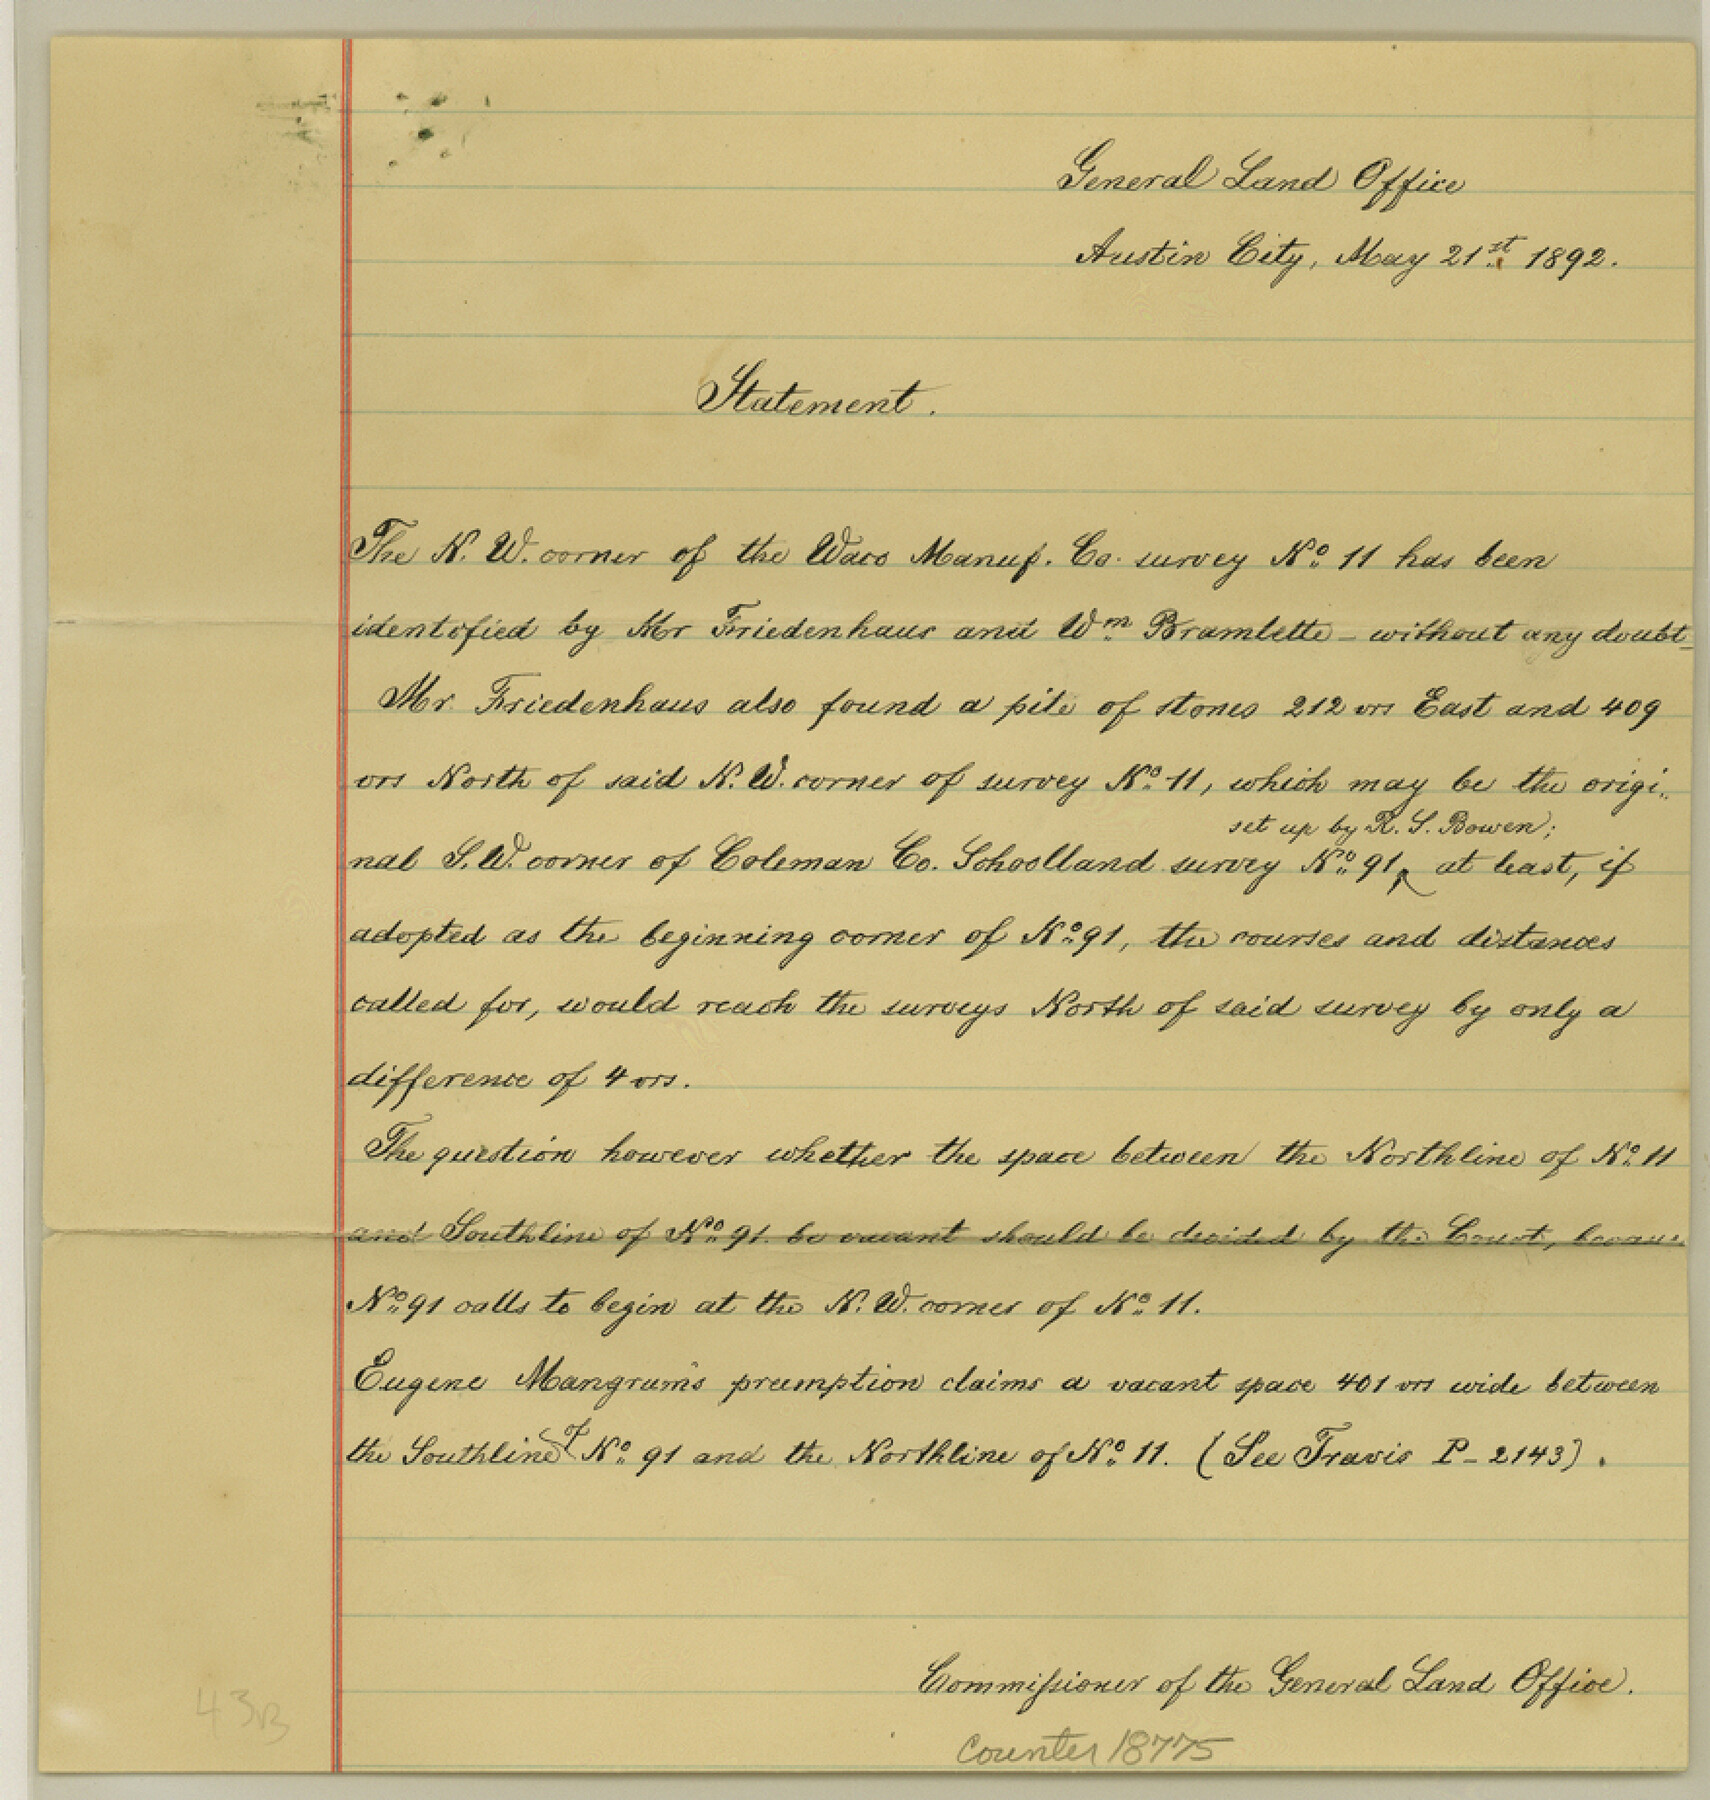 General Land Office
Austin City, May 21st 1892.
Statement.
The N. W. corner of the Waco Manuf. Co. survey No 11 has been
identified by Mr Friedenhaus and Wm Bramlette – without any doubt –
Mr. Friedenhaus also found a pile of stones 212 vrs East and 409
vrs North of said N. W. corner of survey No 11, which may be the origi..
set up by R. S. Bowen;
nal S. W. corner of Coleman Co. Schoolland survey No 91, at least, if
adopted as the beginning corner of No 91, the courses and distances
called for, would reach the surveys North of said survey by only a
difference of 4 vrs.
The question however whether the space between the Northline of No 11
and Southline of No 91. be vacant should be decided by the Court, because
No 91 calls to begin at the N. W. corner of No 11.
Eugene Mangrum's preemption claims a vacant space 401 vrs wide between
the Southline of No 91 and the Northline of No 11. (See Travis P – 2143).
Commissioner of the General Land Office.
43B
counter 18775